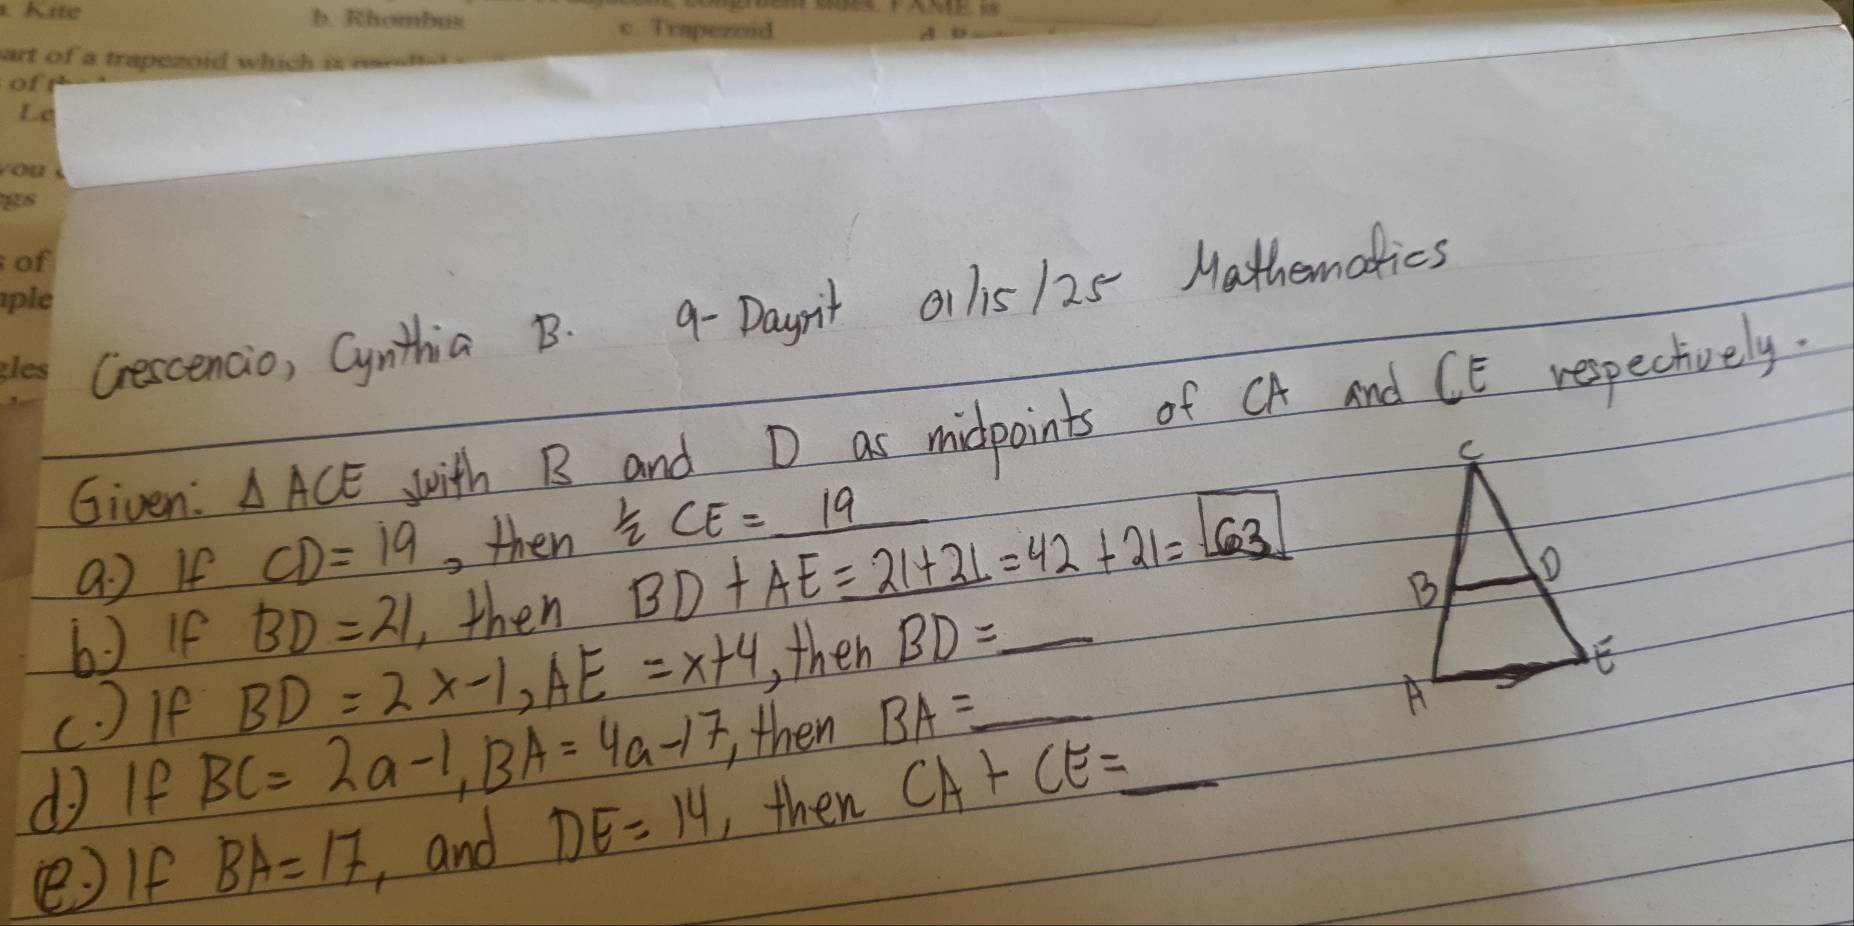 . Kite b. Rhombus c. Trapezoid
FAME is
art of a trapezoid which is
of
Le
you
gs
of
ple
gles
Crescencio, Cynthia B. 9-Dayrit 01/15/25 Mathematics
Given: Δ ACE with B and D as midpoints of CA and CE respectively.
a.) If CD = 19, then ½ CE = 19
b.) If BD = 21, then BD + AE = 21+21 = 42 + 21 = 63
c.) If BD = 2x-1, AE = x+4, then BD = ___
d.) If BC = 2a-1, BA = 4a-17, then BA = ___
e.) If BA = 17, and DE = 14, then CA + CE = ___
C
B D
A E